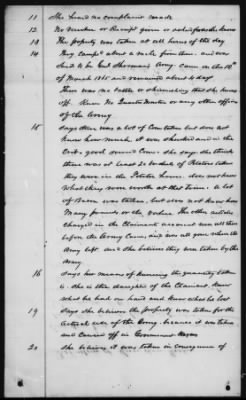 11 She heard no complaint made
12 No voucher or Receipt given or asked for as she knows
13 The property was taken at all hours of the day
14 Army camped about a mile from there and was
said to be Gnl Sherman's Army. came on the 10th
of March 1865 and remained about 4 days
There was no battle or skirmishing that she knows
off. Knew No Quarter Master or any other officer
of the Army
15 Says there was a lot of Corn taken but does not
know how much, it was shucked and in the
Crib. good sound Corn She says she think
there was at least 20 bushels of Potatoes taken
they were in the Potatoe house. does not know
what they were worth at that time. A lot
of Bacon was taken, but does not know how
Many pounds or the value. The other articles
charged in the Claimants account was all there
before the Army Came, and was all gone when the
Army left and she believes they were taken by the
Army
16 Says her means of knowing the quantity taken
is. she is the daughter of the Claimant. knew
what he had on hand and knew what he lost
19 Says she believes the property was taken for the
actual use of the Army, because it was taken
and Carried off in Government Wagons
20 She believes it was taken in consequence of